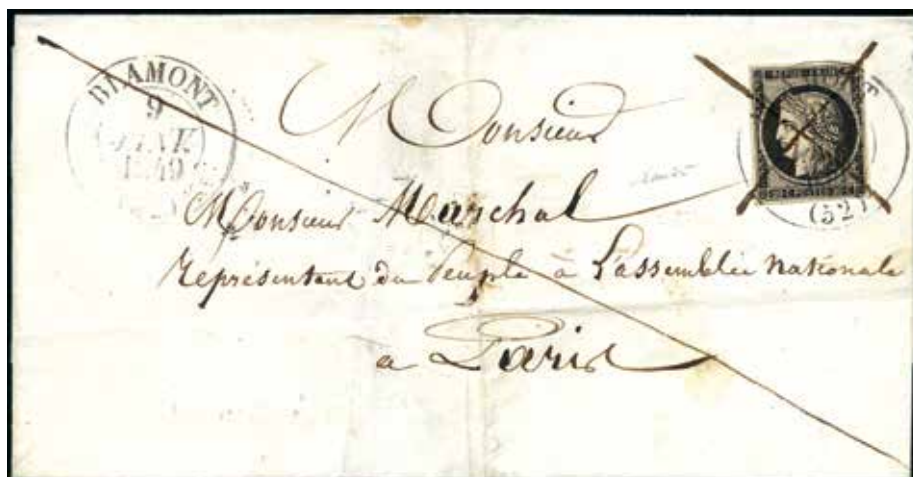 BLAMONT
9
JANV.
1849
REPUB. FRANC.
(52)
Monsieur
Monsieur Marchal
représentant du Peuple à L'assemblée nationale
a Paris